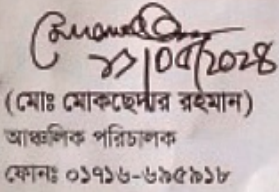 ২১/০৫/২০২৪
(মোঃ মোকছেদার রহমান)
আঞ্চলিক পরিচালক
ফোনঃ ০১৭১৬-৬৯৫৯১৮